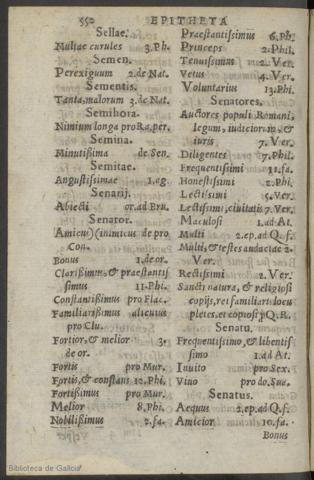 550 EPITHETA
Sellae.
Multae curules 3. Ph.
Semen.
Perexiguum 2. de Nat.
Sementis.
Tanta, malorum 3. de Nat.
Semihora.
Nimium longa pro Ra. per.
Semina.
Minutißima de Sen.
Semitae.
Angustissimae 1. ag.
Senarij.
Abiecti or. ad Bru.
Senator.
Amicus) (inimicus de pro
Con.
Bonus 1. de or.
Clarißimus, & praestantis
simus 11. Phi.
Constantißimus pro Flac.
Familiarißimus alicuius
pro Clu.
Fortior, & melior 3.
de or.
Fortis pro Mur.
Fortis, & constans 10. Phi.
Fortißimus pro Mur.
Melior 8. Phi.
Nobilißimus 2. fa.
Praestantissimus 6. Ph.
Princeps 2. Phil.
Tenuissimus 2. Ver.
Vetus 4. Ver.
Voluntarius 13. Phi.
Senatores.
Auctores populi Romani,
legum, iudiciorum, &
iuris 7. Ver.
Diligentes 7. Phil.
Frequentissimi 11. fa.
Honestissimi 2. Phi.
Lectissimi 5. Ver.
Lectissimi, ciuitatis 7. Ver.
Maculosi 1. ad At.
Multi 2. ep. ad Q. f.
Multi, & testes audaciae 2.
Ver.
Rectissimi 2. Ver.
Sancti natura, & religiosi
copijs, rei familiari locu
pletes, et copiosi p Q. R.
Senatu.
Frequentissimo, & libentis
simo 1. ad At.
Inuito pro Sex.
Viuo pro do. sua.
Senatus.
Aequus 2. ep. ad Q. f.
Amicior 10. fa.
Bonus
Biblioteca de Galicia